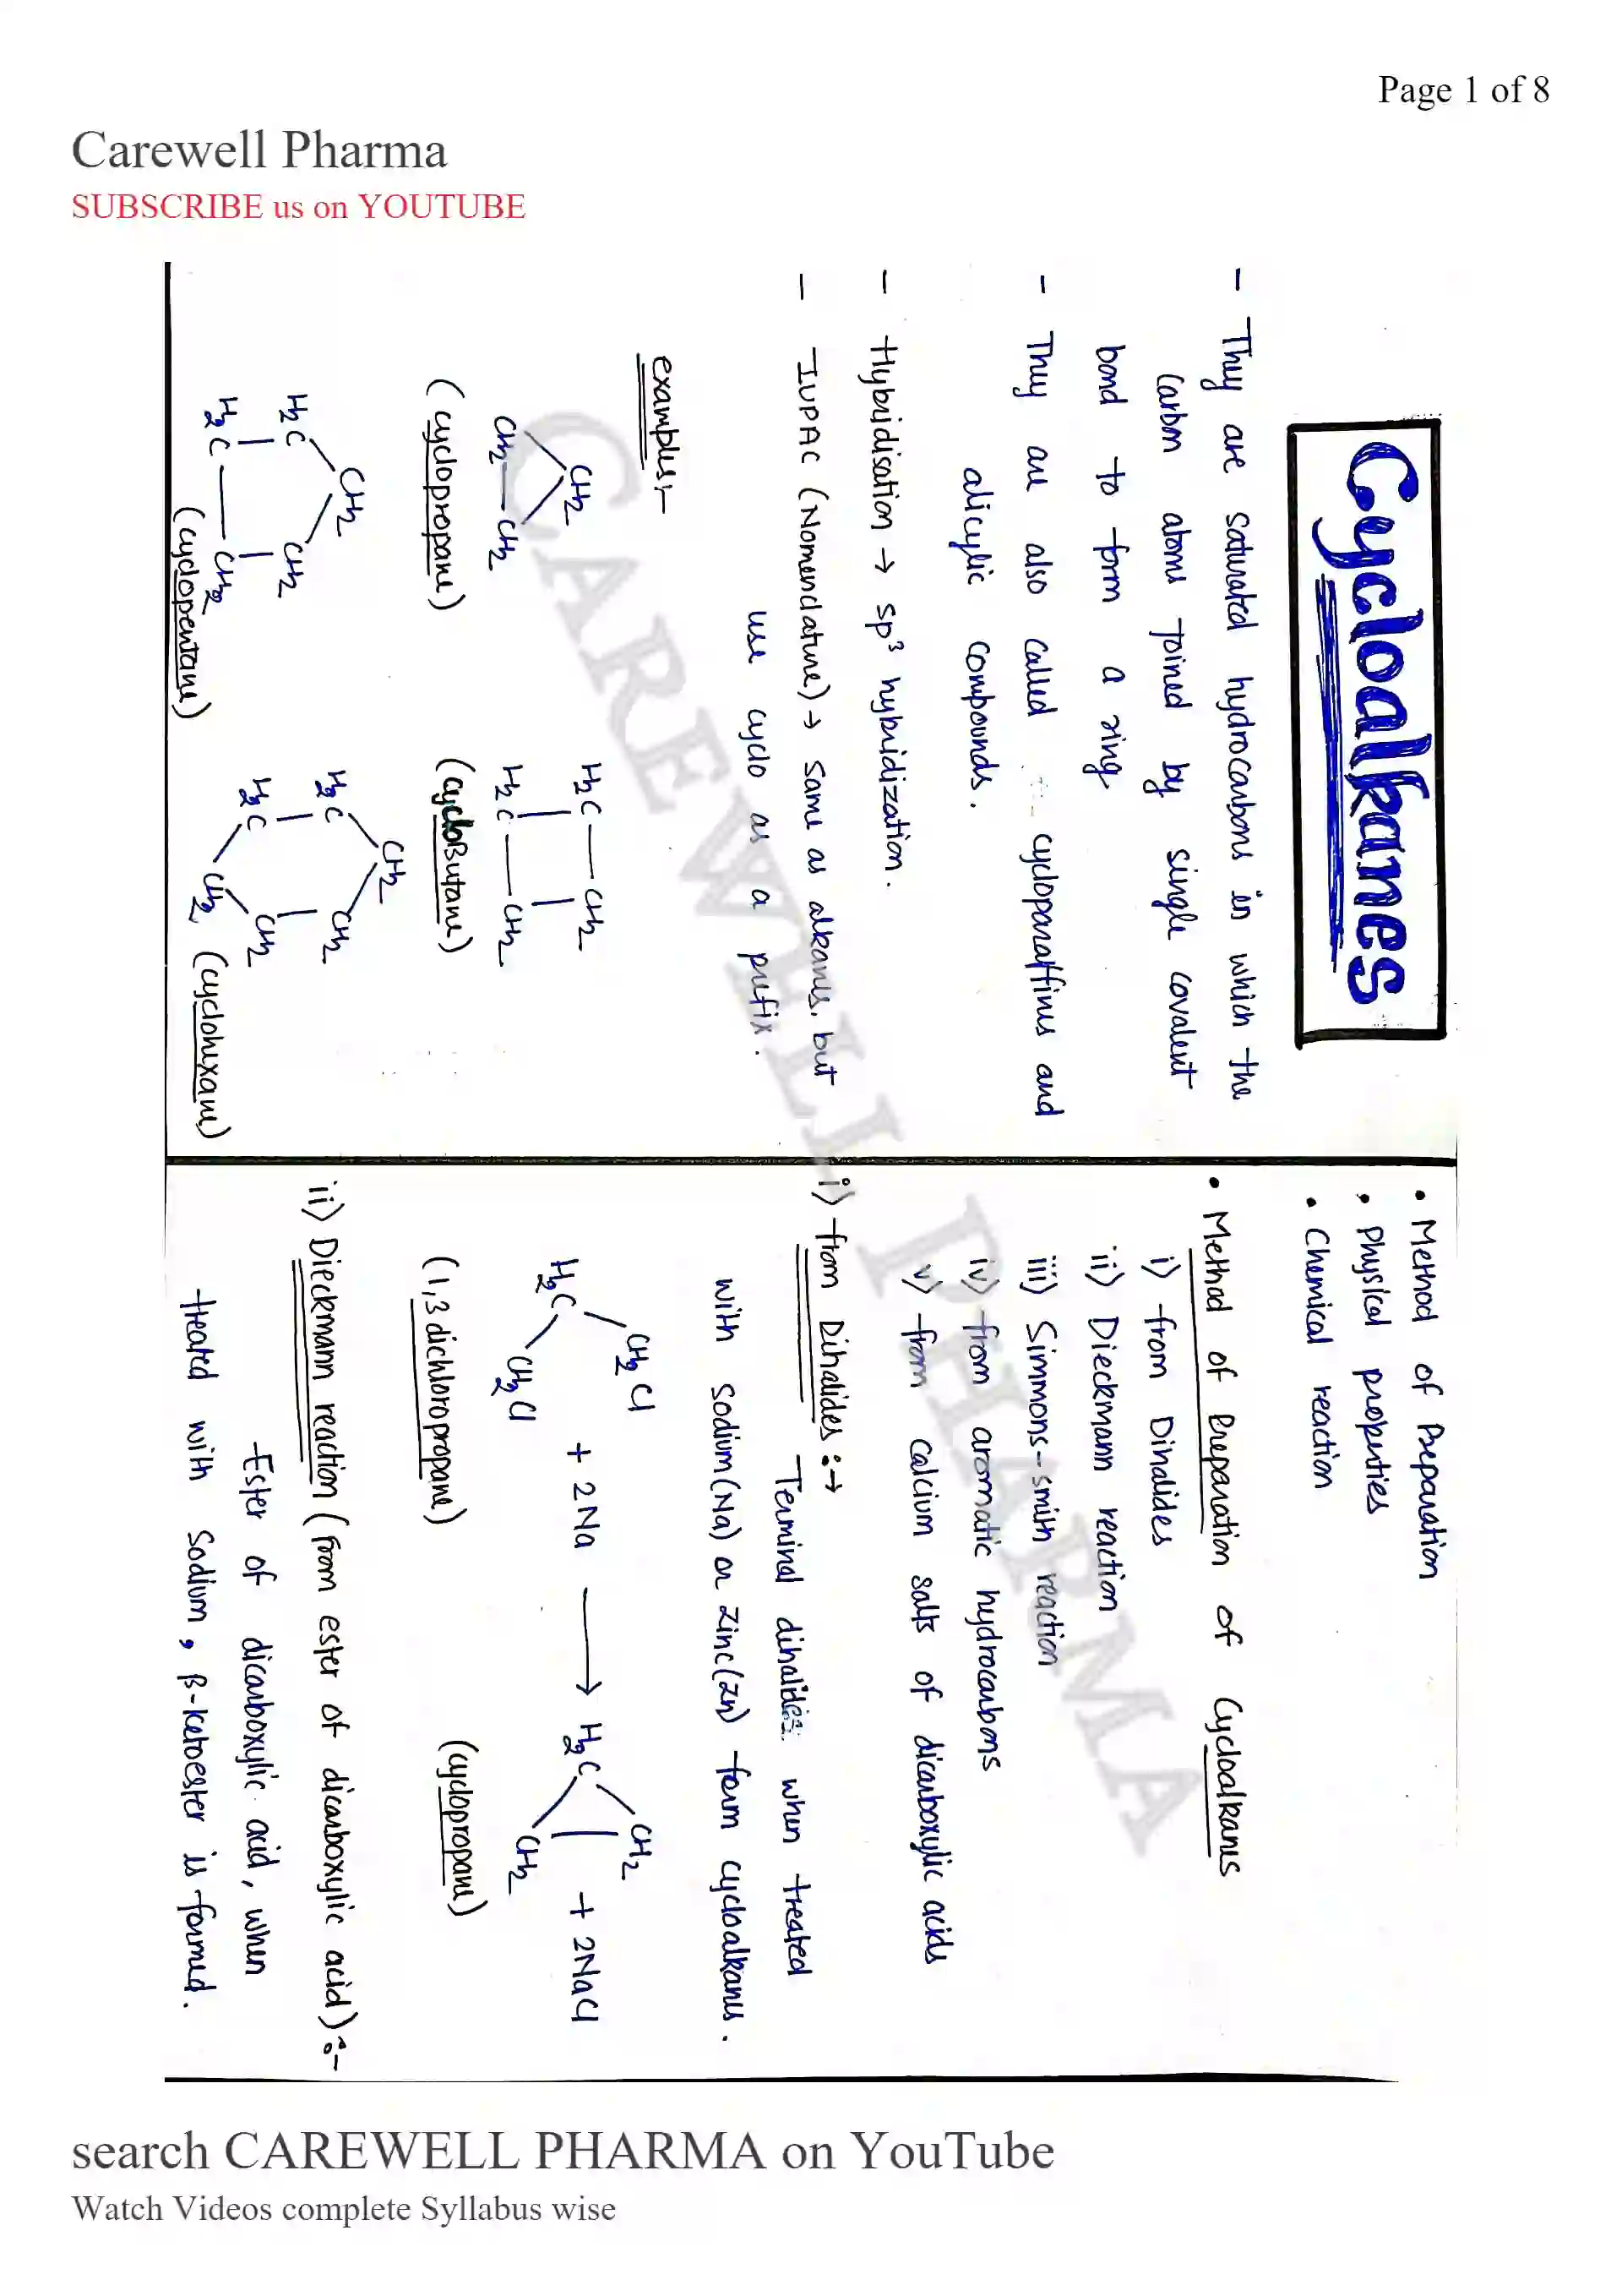 Page 1 of 8
Carewell Pharma
SUBSCRIBE us on YOUTUBE
Cycloalkanes
- They are saturated hydrocarbons in which the
carbon atoms joined by single covalent
bond to form a ring
- They are also called cycloparaffins and
alicylic compounds.
- Hybridisation → sp³ hybridization.
- IUPAC (Nomenclature) → same as alkanes, but
use cyclo as a prefix.
examples:-
CH₂
CH₂ CH₂
(cyclopropane)
H₂C CH₂
H₂C CH₂
(cycloButane)
CH₂
H₂C CH₂
H₂C CH₂
(cyclopentane)
CH₂
H₂C CH₂
H₂C CH₂
CH₂
(cyclohexane)
• Method of Preparation
• Physical properties
• Chemical reaction
• Method of Preparation of Cycloalkanes
i) from Dihalides
ii) Dieckmann reaction
iii) Simmons-smith reaction
iv) from aromatic hydrocarbons
v) from calcium salts of dicarboxylic acids
i) from Dihalides :→
Terminal dihalides when treated
with sodium(Na) or Zinc(Zn) form cycloalkanes.
CH₂Cl CH₂
H₂C + 2Na → H₂C + 2NaCl
CH₂Cl CH₂
(1,3 dichloropropane) (cyclopropane)
ii) Dieckmann reaction (from ester of dicarboxylic acid):-
-Ester of dicarboxylic acid, when
treated with sodium, β-ketoester is formed.
CAREWELL PHARMA
search CAREWELL PHARMA on YouTube
Watch Videos complete Syllabus wise